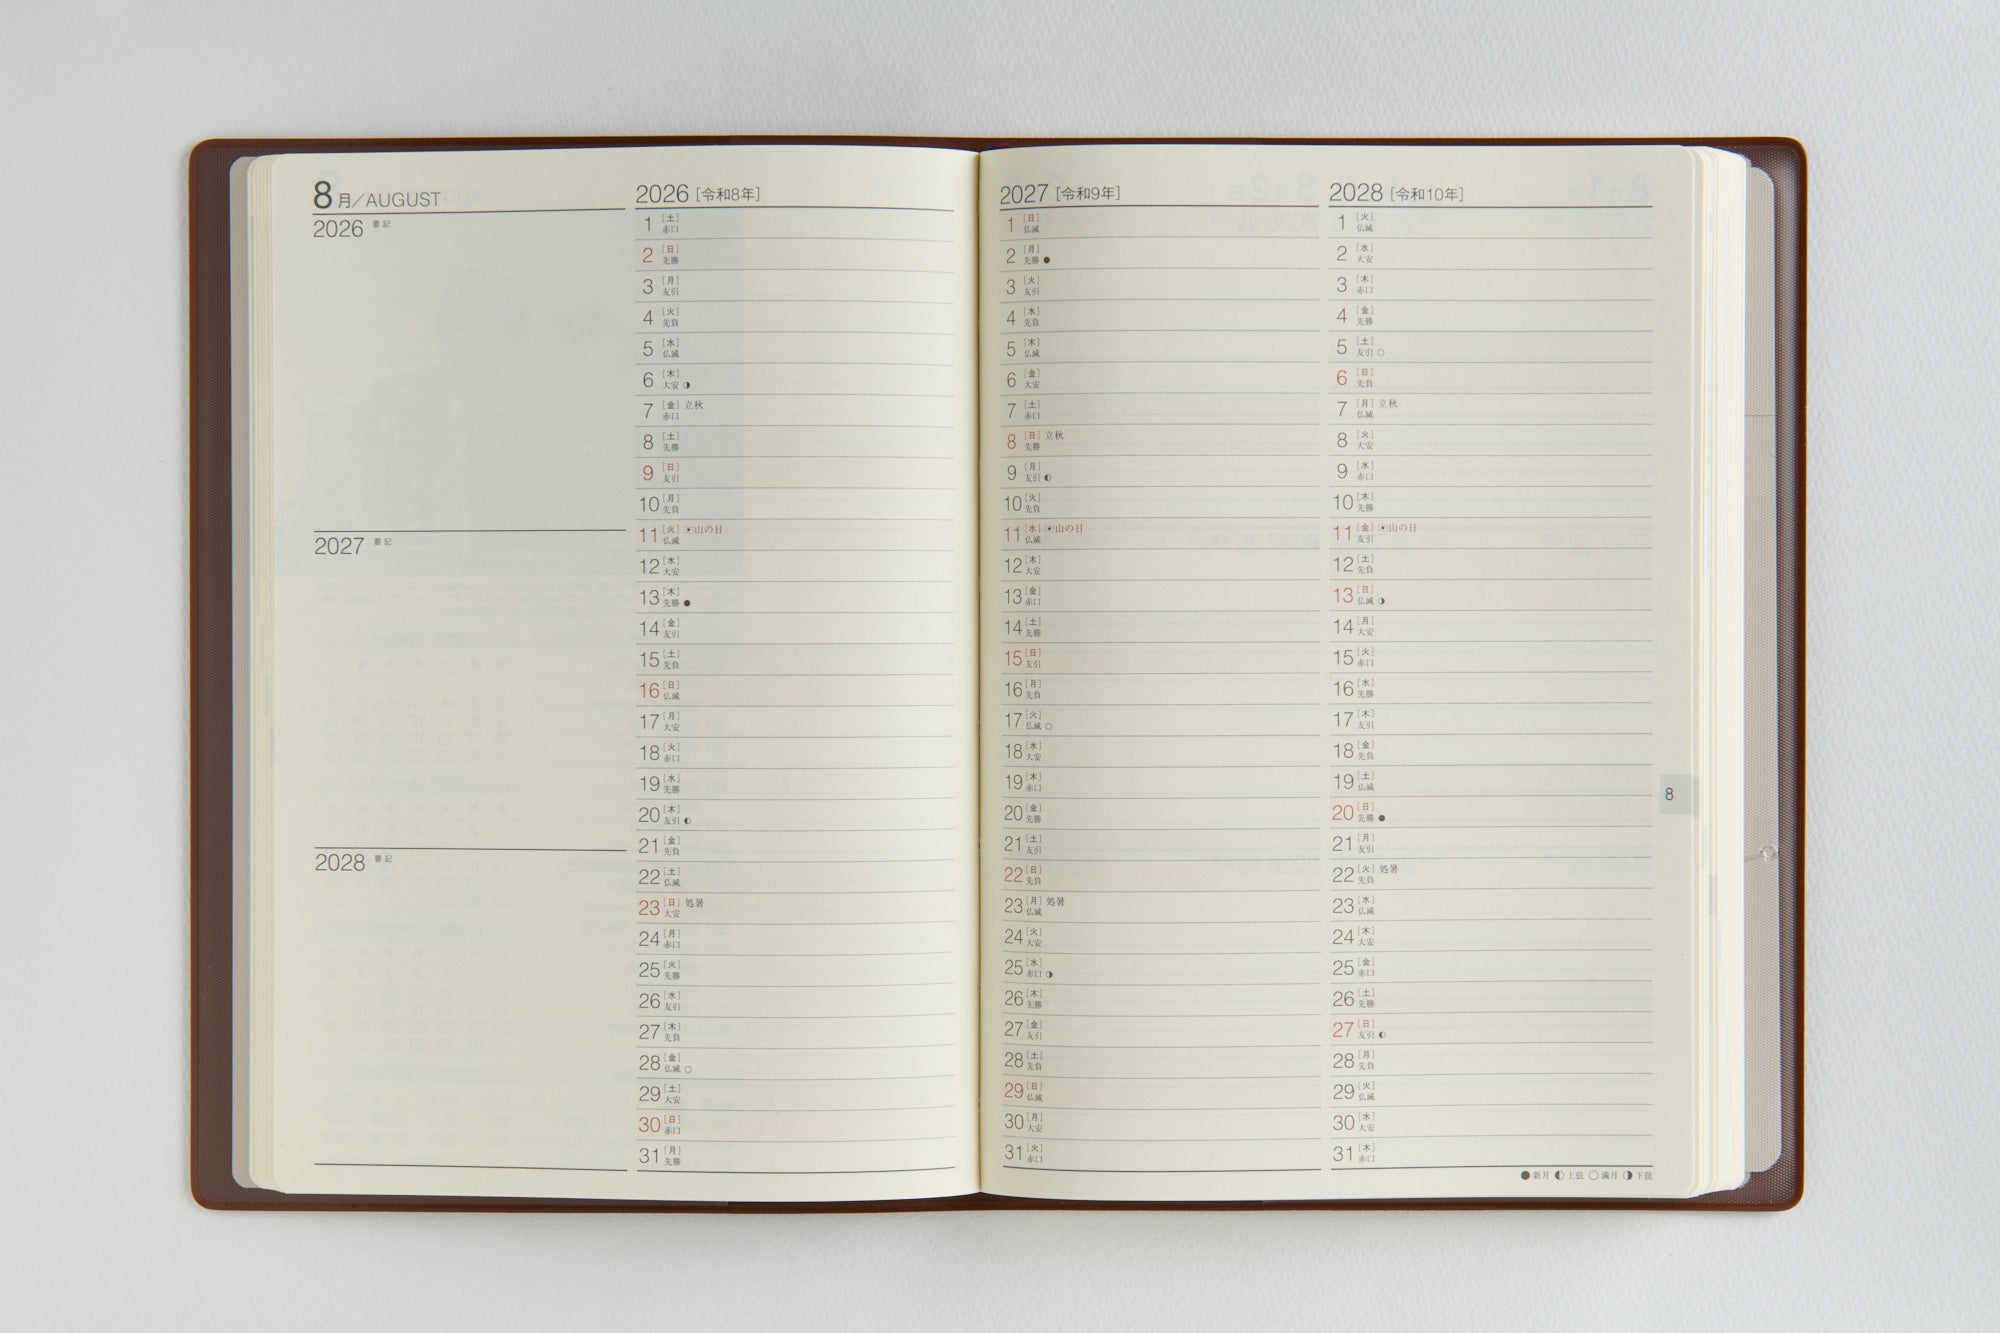 8月／AUGUST
2026 要記
2027 要記
2028 要記
2026［令和8年］
1［土］
赤口
2［日］
先勝
3［月］
友引
4［火］
先負
5［水］
仏滅
6［木］
大安◑
7［金］立秋
赤口
8［土］
先勝
9［日］
友引
10［月］
先負
11［火］山の日
仏滅
12［水］
大安
13［木］
先勝●
14［金］
友引
15［土］
先負
16［日］
仏滅
17［月］
大安
18［火］
赤口
19［水］
先勝
20［木］
友引◐
21［金］
先負
22［土］
仏滅
23［日］処暑
大安
24［月］
赤口
25［火］
先勝
26［水］
友引
27［木］
先負
28［金］
仏滅○
29［土］
大安
30［日］
赤口
31［月］
先勝
2027［令和9年］
1［日］
仏滅
2［月］
先勝●
3［火］
友引
4［水］
先負
5［木］
仏滅
6［金］
大安
7［土］
赤口
8［日］立秋
先勝
9［月］
友引◐
10［火］
先負
11［水］山の日
仏滅
12［木］
大安
13［金］
赤口
14［土］
先勝
15［日］
友引
16［月］
先負
17［火］
仏滅○
18［水］
大安
19［木］
赤口
20［金］
先勝
21［土］
友引
22［日］
先負
23［月］処暑
仏滅
24［火］
大安
25［水］
赤口◑
26［木］
先勝
27［金］
友引
28［土］
先負
29［日］
仏滅
30［月］
大安
31［火］
赤口
2028［令和10年］
1［火］
仏滅
2［水］
大安
3［木］
赤口
4［金］
先勝
5［土］
友引○
6［日］
先負
7［月］立秋
仏滅
8［火］
大安
9［水］
赤口
10［木］
先勝
11［金］山の日
友引
12［土］
先負
13［日］
仏滅◑
14［月］
大安
15［火］
赤口
16［水］
先勝
17［木］
友引
18［金］
先負
19［土］
仏滅
20［日］
先勝●
21［月］
友引
22［火］処暑
先負
23［水］
仏滅
24［木］
大安
25［金］
赤口
26［土］
先勝
27［日］
友引◐
28［月］
先負
29［火］
仏滅
30［水］
大安
31［木］
赤口
●新月 ◐上弦 ○満月 ◑下弦
8